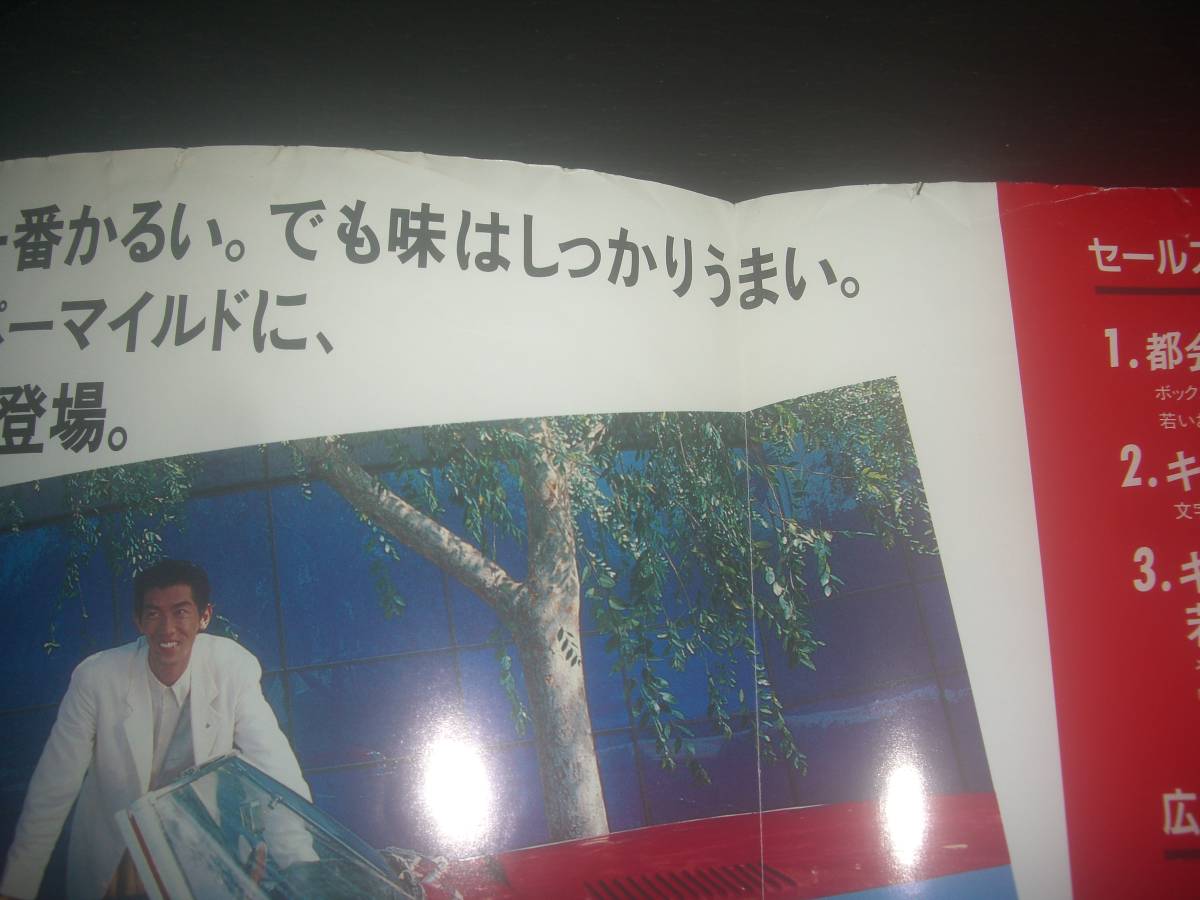 一番かるい。でも味はしっかりうまい。
パーマイルドに、
登場。
セールス
1.都会
ボック
若いお
2.キ
文字
3.キ
若
広